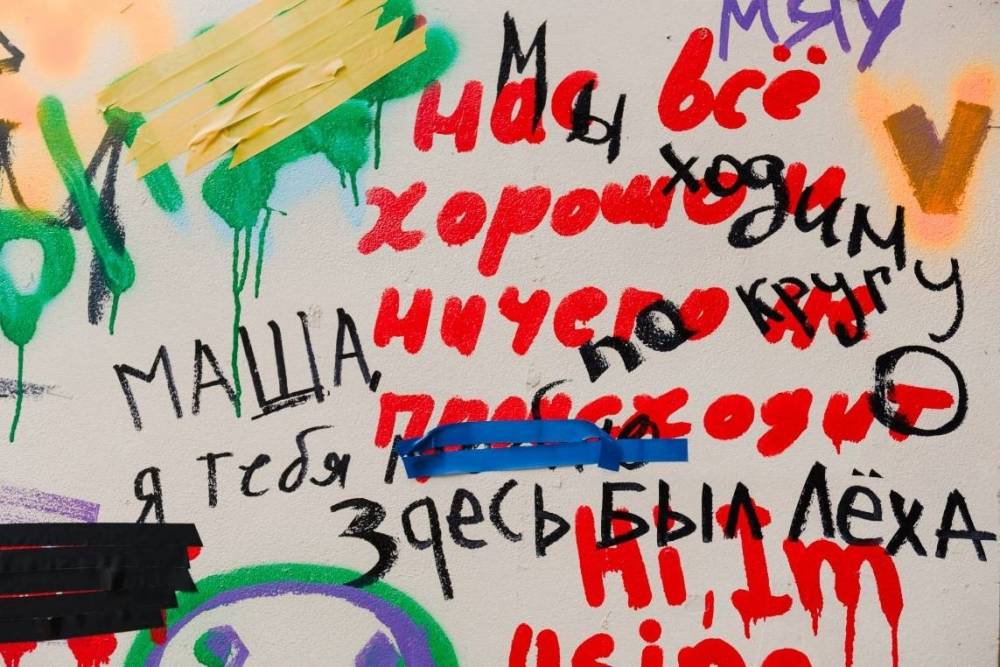 МЯУ
Мы
нас всё
ходим
хорошо и
по кругу
ничего не
МАША,
происходит
я тебя
Здесь был Лёха
Hi, Im